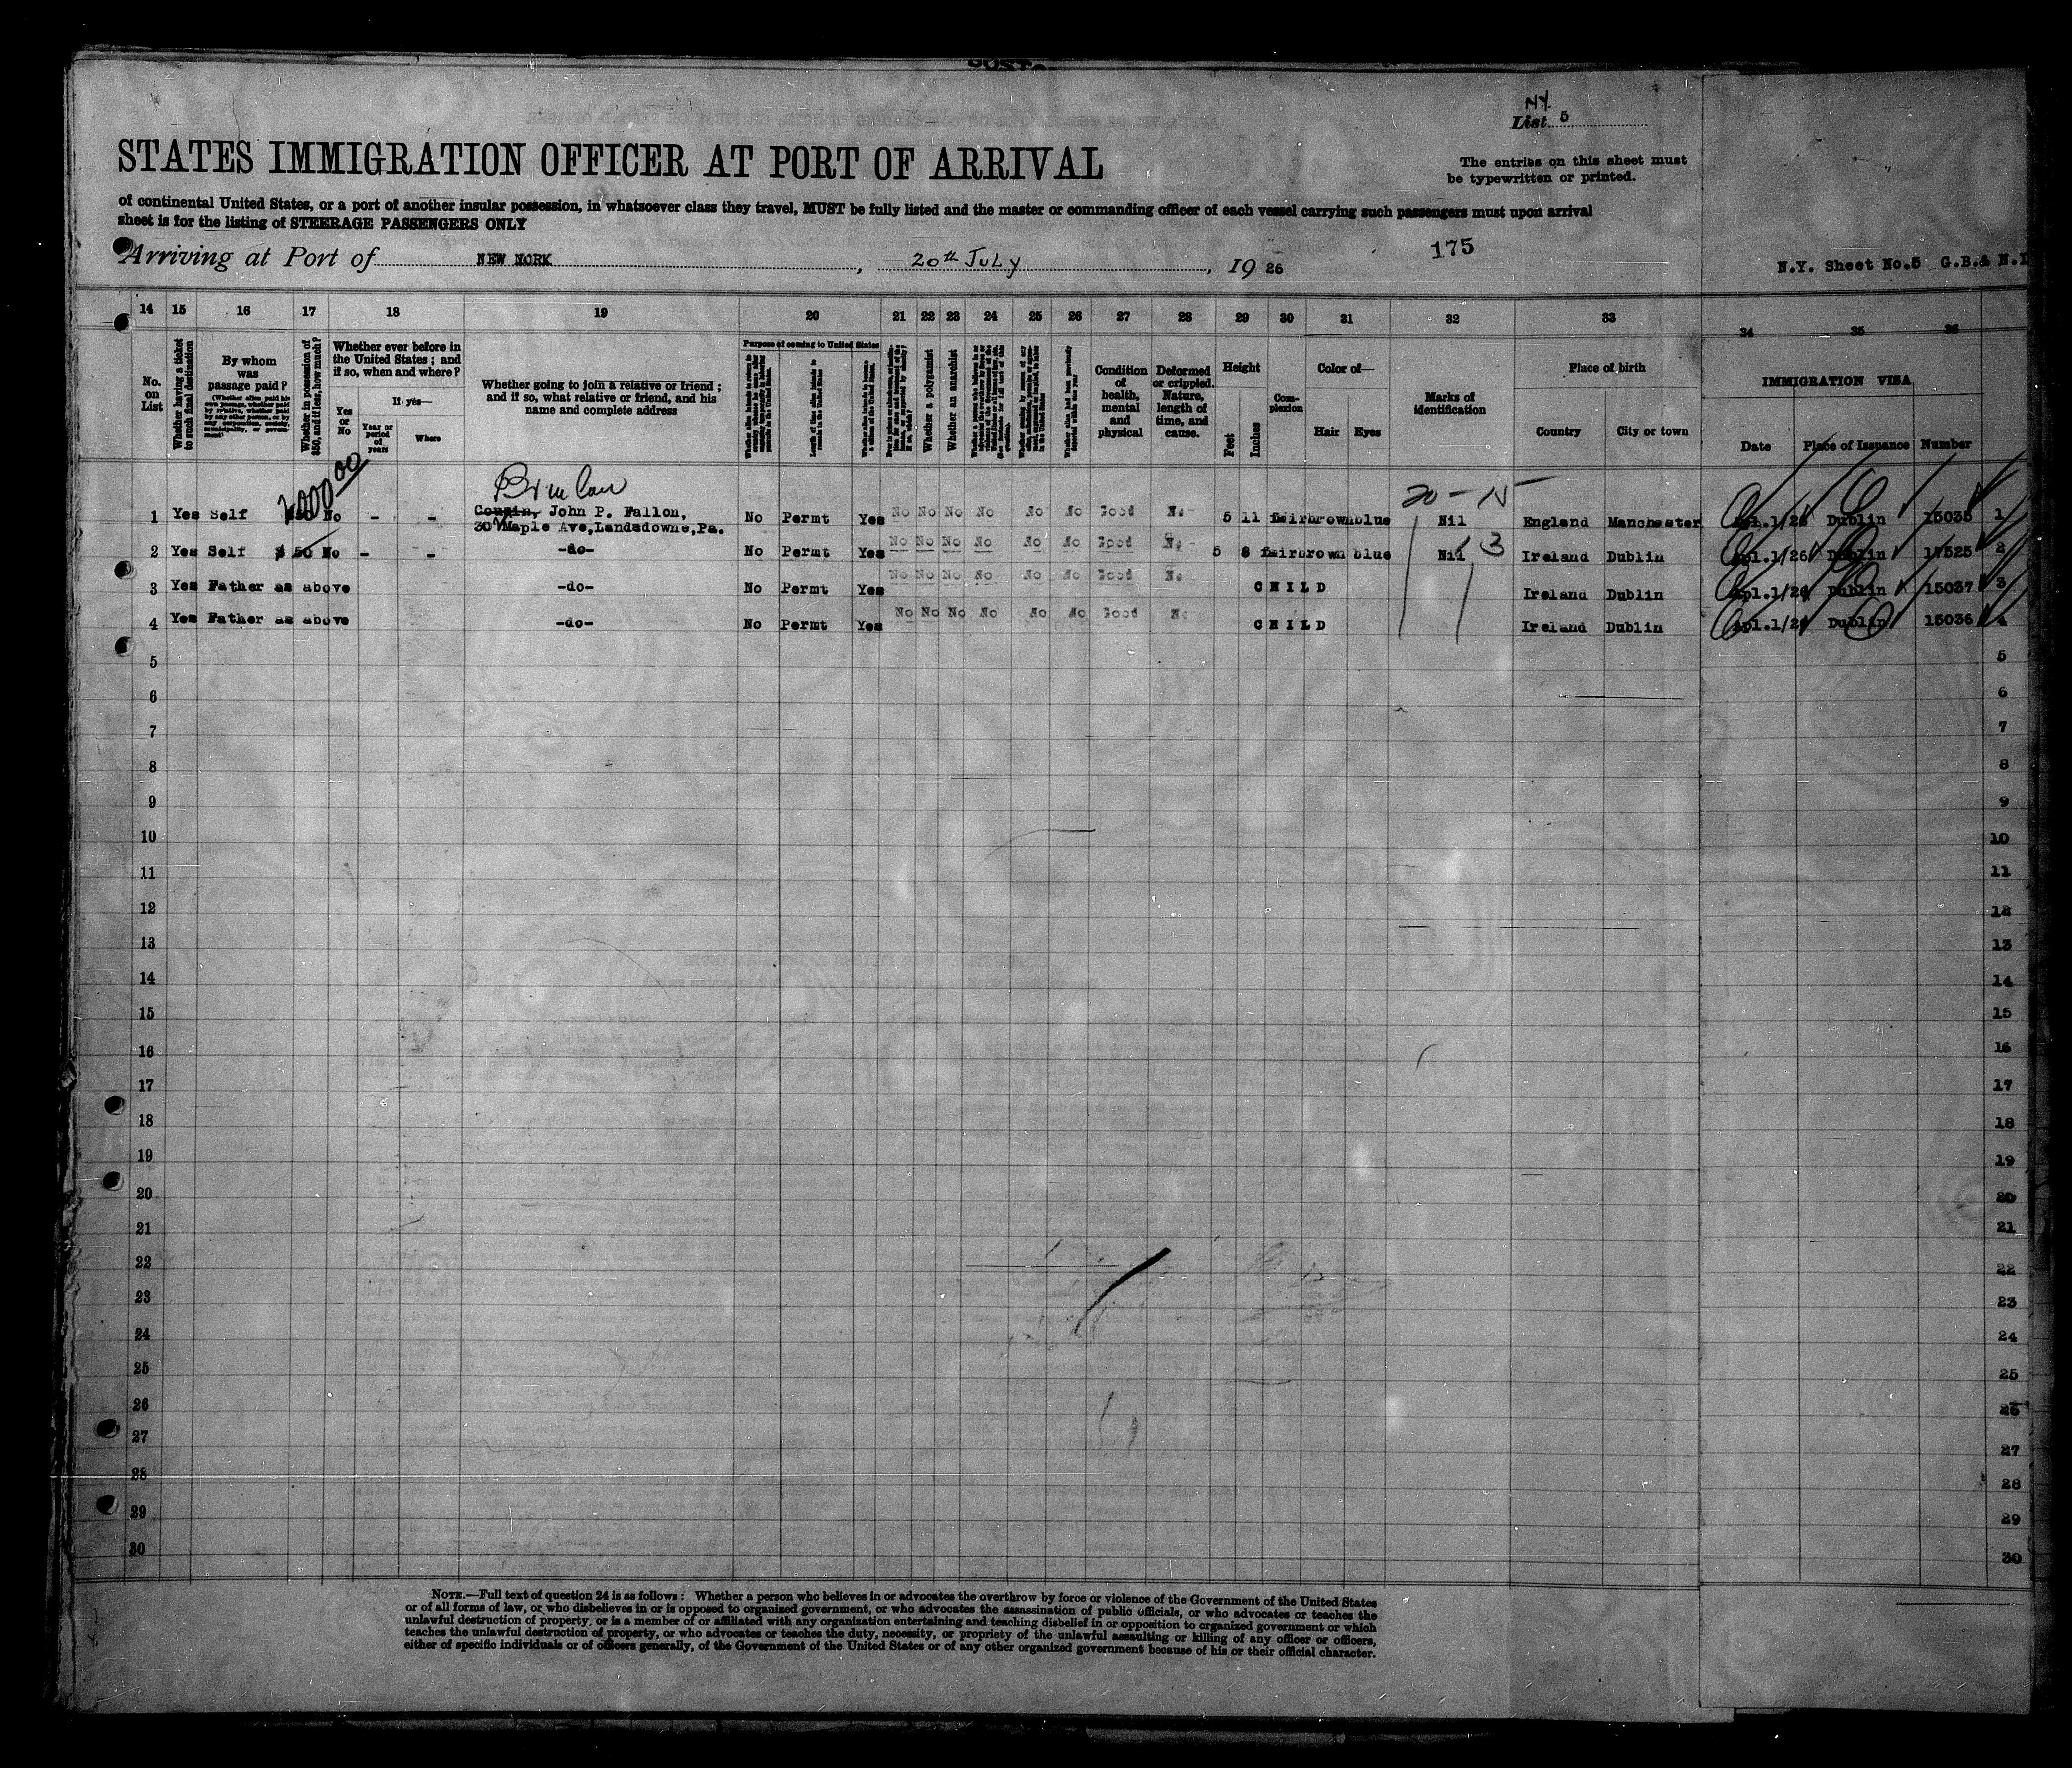 NY.
List 5
STATES IMMIGRATION OFFICER AT PORT OF ARRIVAL
The entries on this sheet must
be typewritten or printed.
of continental United States, or a port of another insular possession, in whatsoever class they travel, MUST be fully listed and the master or commanding officer of each vessel carrying such passengers must upon arrival
sheet is for the listing of STEERAGE PASSENGERS ONLY
Arriving at Port of NEW NORK, 20th JULY, 19 26
175
N.Y. Sheet No.5 G.B.& N.I
14 15 16 17 18 19 20 21 22 23 24 25 26 27 28 29 30 31 32 33 34 35 36
No. on List
Whether having a ticket to such final destination
By whom was passage paid?
(Whether alien paid his own passage, whether paid by relative, whether paid by any other person, or by any corporation, society, municipality, or government)
Whether in possession of $50, and if less, how much?
Whether ever before in the United States; and if so, when and where?
Yes or No
If yes—
Year or period of years
Where
Whether going to join a relative or friend; and if so, what relative or friend, and his name and complete address
Purpose of coming to United States
Length of time alien intends to remain in the United States
Whether alien intends to become a citizen of the United States
Whether a polygamist
Whether an anarchist
Condition of health, mental and physical
Deformed or crippled. Nature, length of time, and cause.
Height
Feet
Inches
Complexion
Color of—
Hair
Eyes
Marks of identification
Place of birth
Country
City or town
IMMIGRATION VISA
Date
Place of Issuance
Number
2000 00
20-15
1 Yes Self No - - Cousin, John P. Fallon, No Permt Yes No No No No No No Good No 5 11 fair brown blue Nil England Manchester Apl.1/26 Dublin 15035 1
30 Maple Ave, Landsdowne, Pa.
2 Yes Self $ 50 No - - -do- No Permt Yes No No No No No No Good No 5 8 fair brown blue Nil 3 Ireland Dublin Apl.1/26 Dublin 2
3 Yes Father as above -do- No Permt Yes No No No No No No Good No CHILD Ireland Dublin Apl.1/26 Dublin 15037 3
4 Yes Father as above -do- No Permt Yes No No No No No No Good No CHILD Ireland Dublin Apl.1/26 Dublin 15036 4
5 5
6 6
7 7
8 8
9 9
10 10
11 11
12 12
13 13
14 14
15 15
16 16
17 17
18 18
19 19
20 20
21 21
22 22
23 23
24 24
25 25
26 26
27 27
28 28
29 29
30 30
NOTE.—Full text of question 24 is as follows: Whether a person who believes in or advocates the overthrow by force or violence of the Government of the United States
or of all forms of law, or who disbelieves in or is opposed to organized government, or who advocates the assassination of public officials, or who advocates or teaches the
unlawful destruction of property, or is a member of or affiliated with any organization entertaining and teaching disbelief in or opposition to organized government or which
teaches the unlawful destruction of property, or who advocates or teaches the duty, necessity, or propriety of the unlawful assaulting or killing of any officer or officers,
either of specific individuals or of officers generally, of the Government of the United States or of any other organized government because of his or their official character.